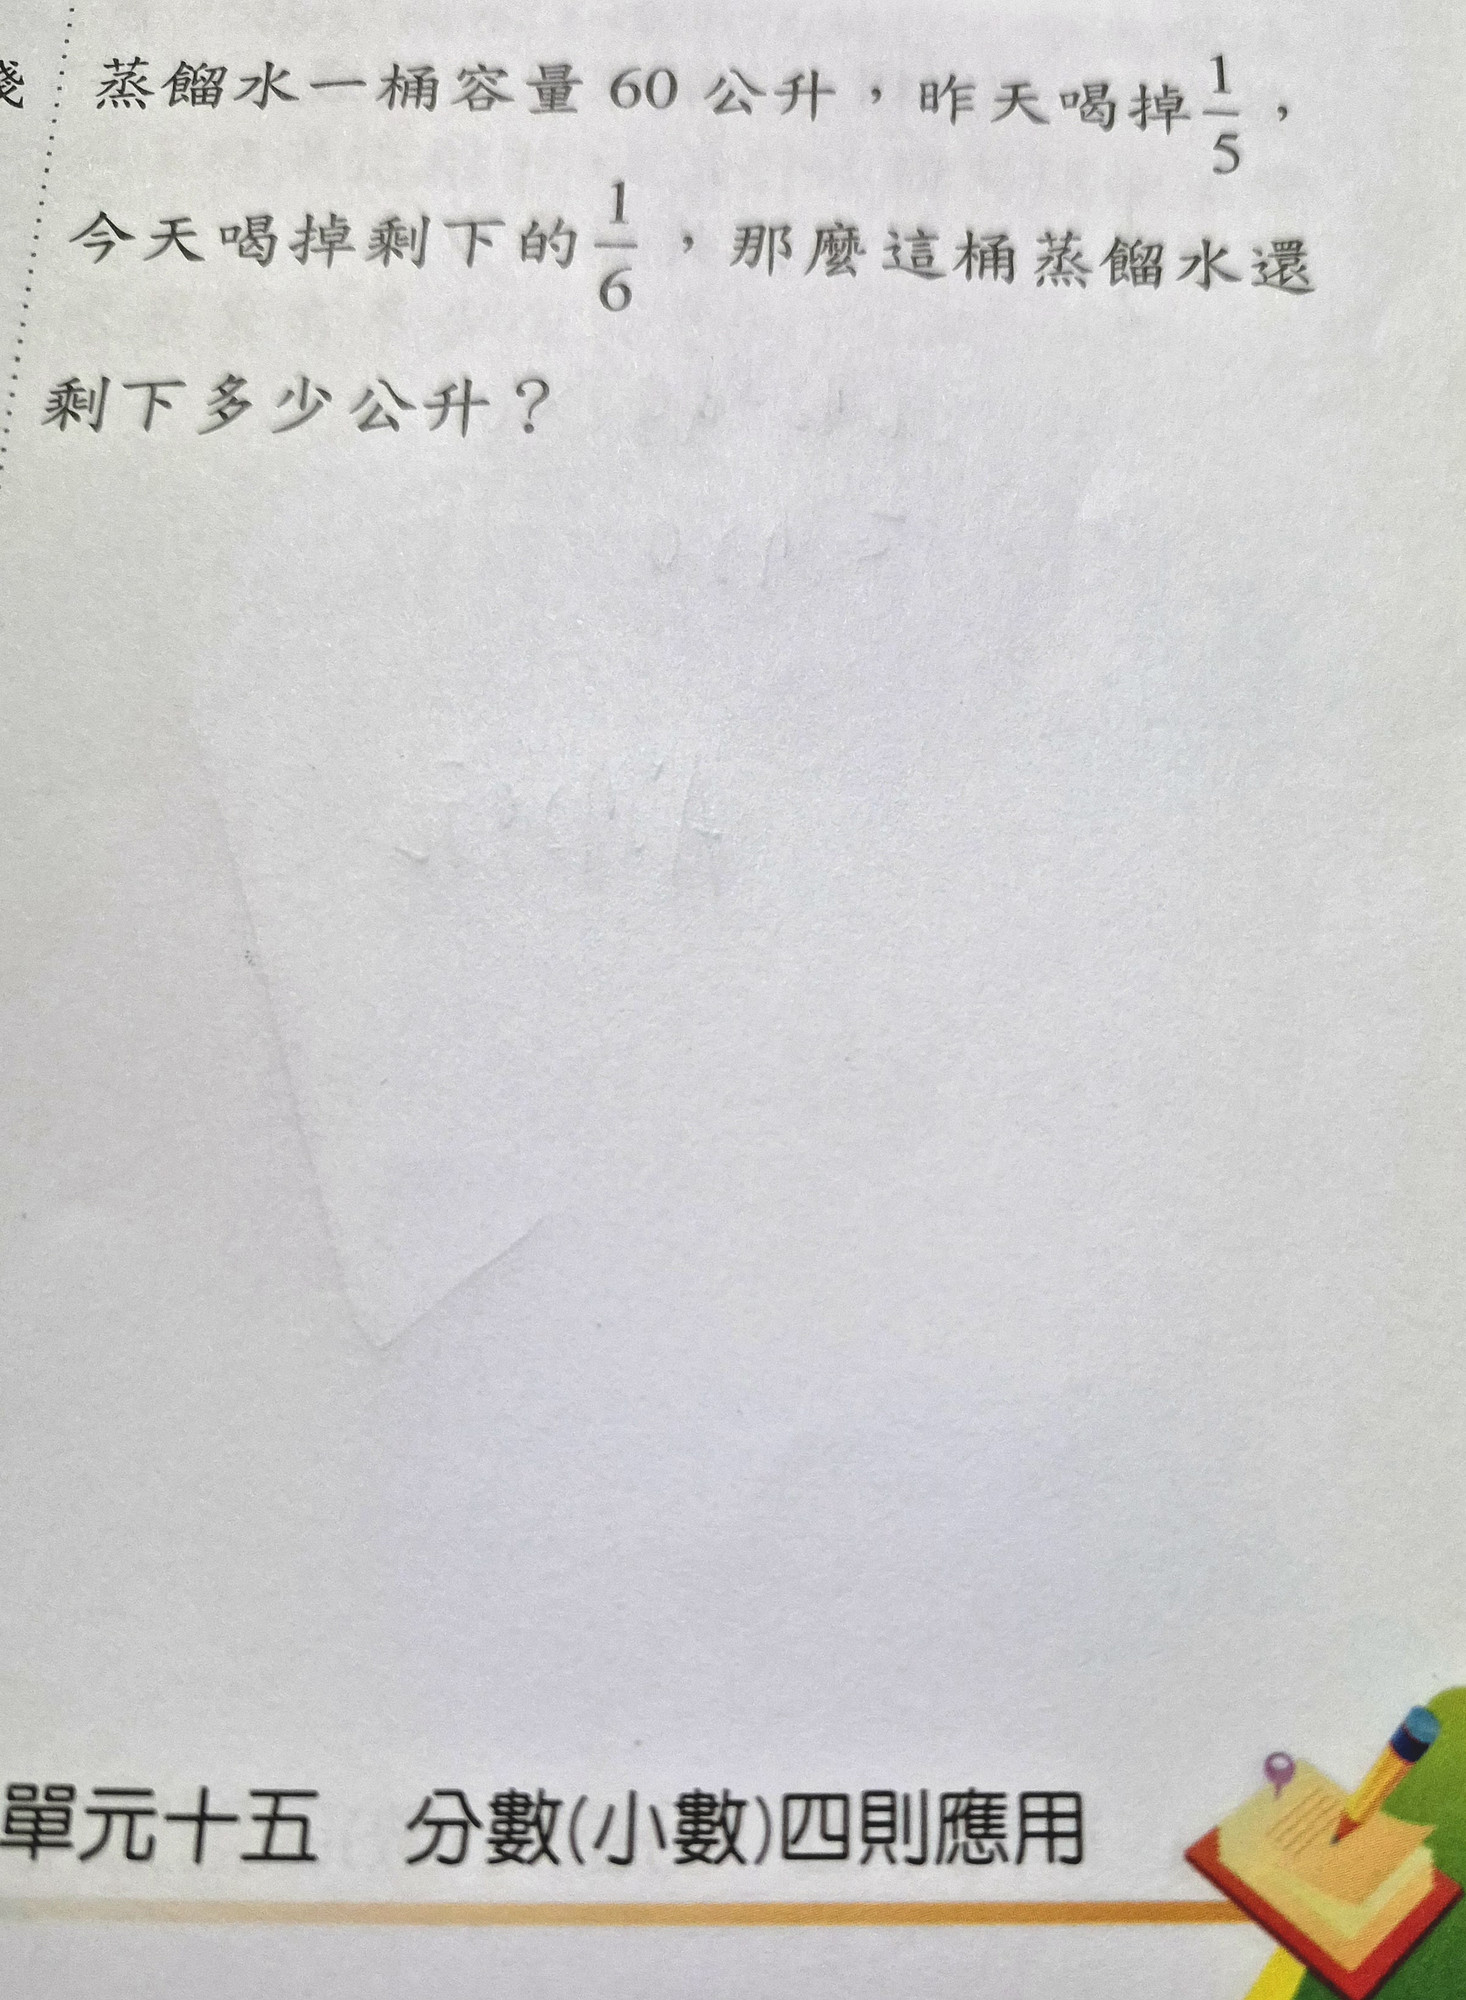 蒸餾水一桶容量 60 公升，昨天喝掉 1/5，
今天喝掉剩下的 1/6，那麼這桶蒸餾水還
剩下多少公升？
單元十五 分數(小數)四則應用